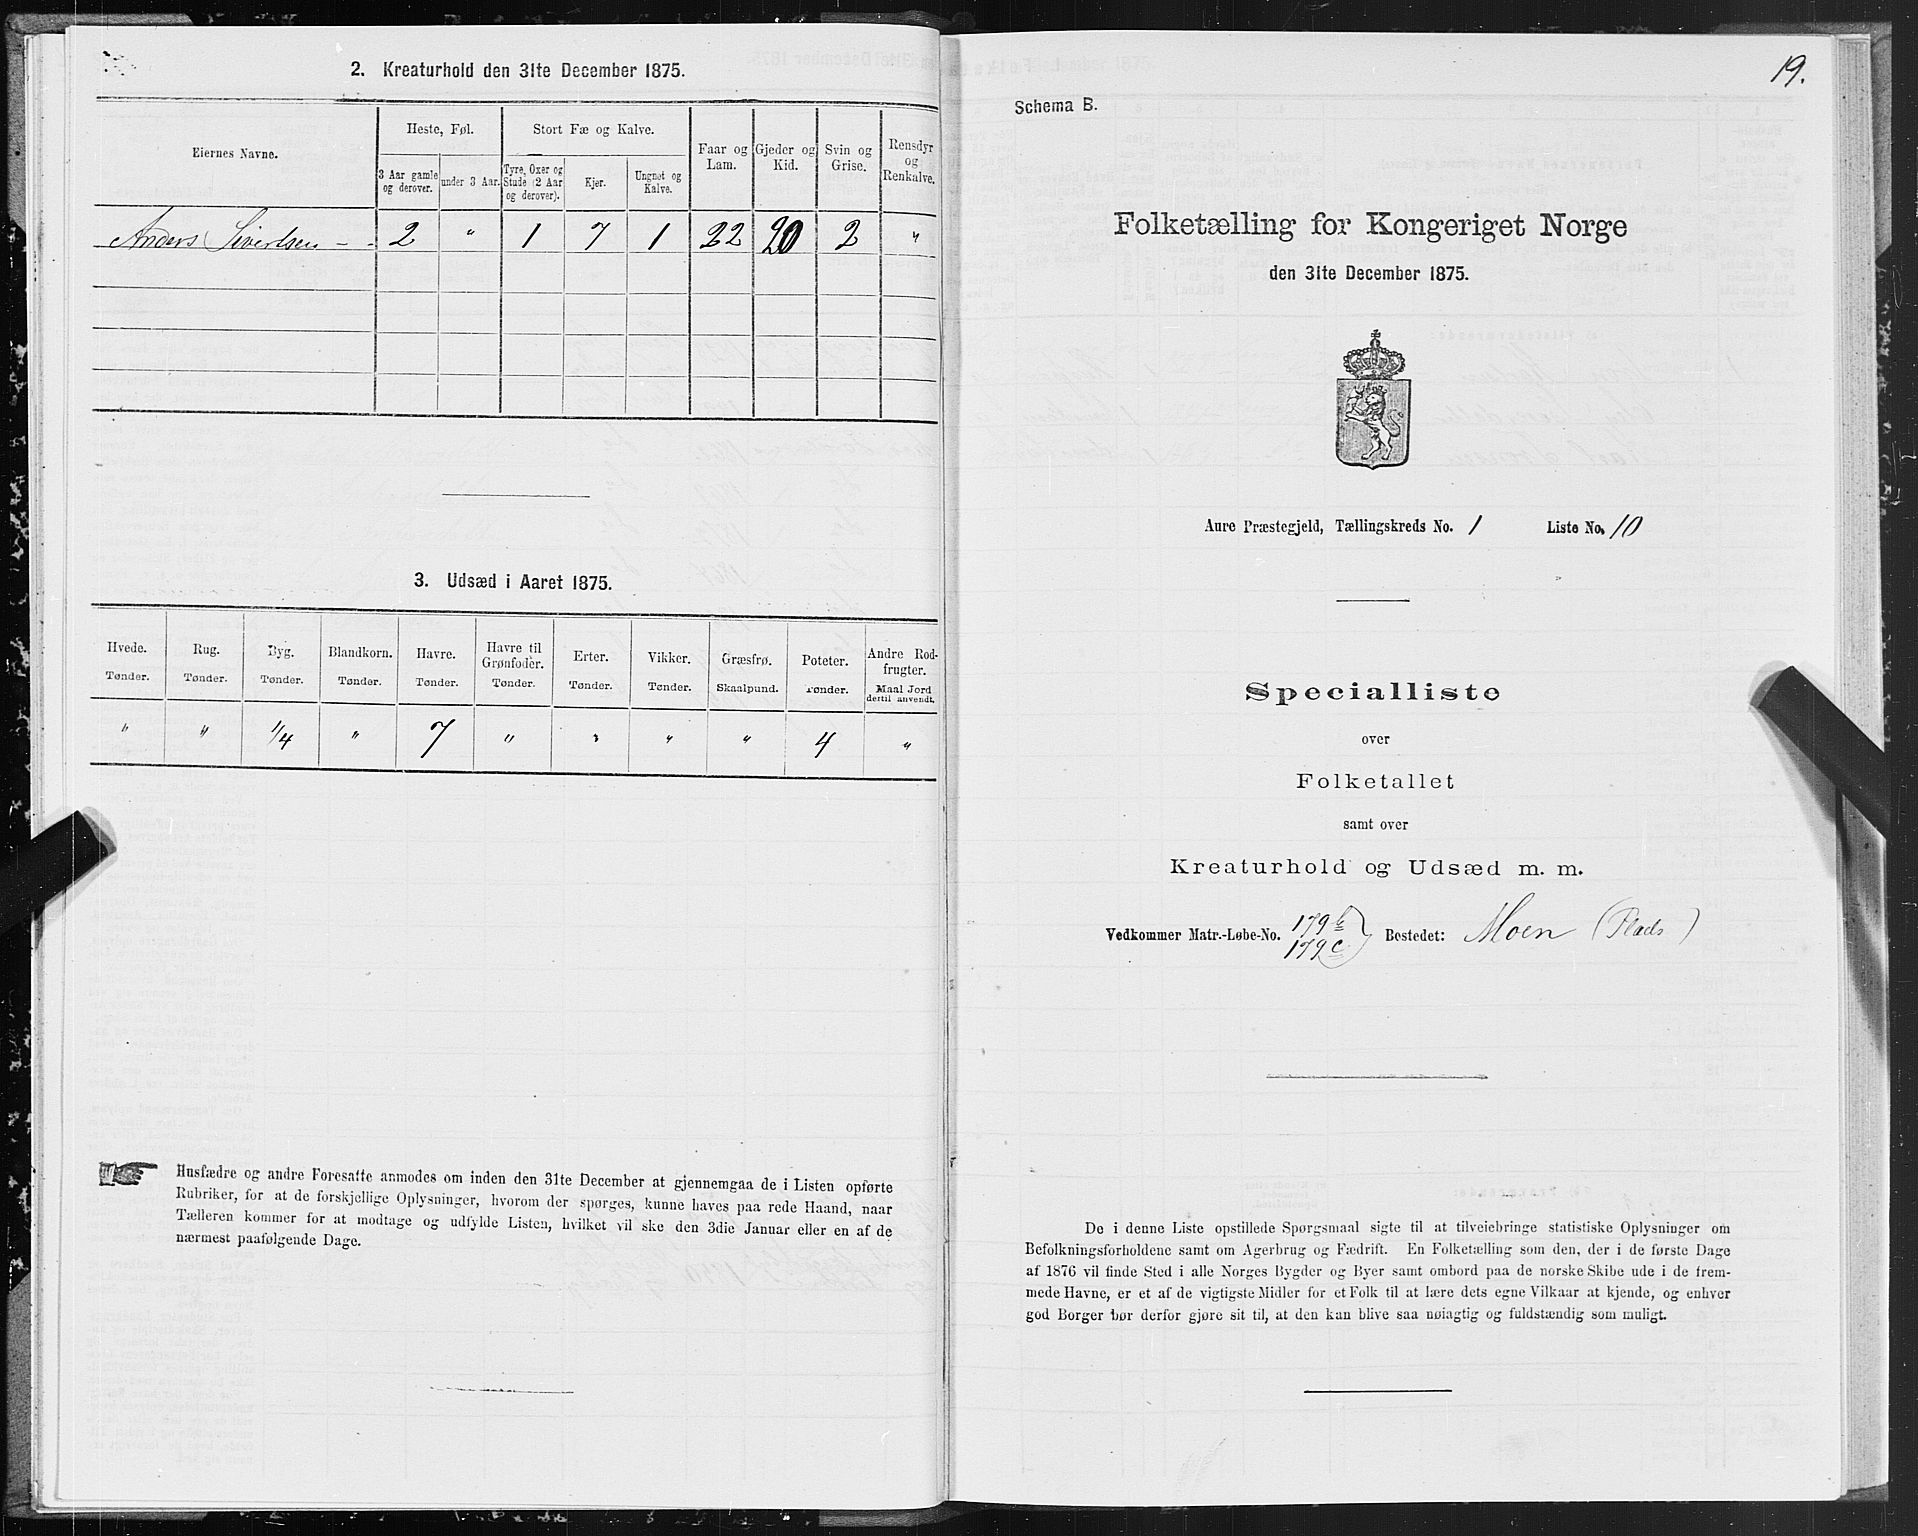 2. Kreaturhold den 31te December 1875.
Eiernes Navne.
Heste, Føl.
Stort Fæ og Kalve.
Faar og Lam.
Gjeder og Kid.
Svin og Grise.
Rensdyr og Renkalve.
3 Aar gamle og derover.
under 3 Aar.
Tyre, Oxer og Stude (2 Aar og derover).
Kjer.
Ungnøt og Kalve.
Anders Sivertsen - - 2 " 1 7 1 22 20 2 "
3. Udsæd i Aaret 1875.
Hvede. Rug. Byg. Blandkorn. Havre. Havre til Grønfoder. Erter. Vikker. Græsfrø. Poteter. Andre Rodfrugter.
Tønder. Tønder. Tønder. Tønder. Tønder. Tønder. Tønder. Tønder. Skaalpund. Tønder. Maal Jord dertil anvendt.
" " 1/4 " 7 " " " " 4 "
Husfædre og andre Foresatte anmodes om inden den 31te December at gjennemgaa de i Listen opførte
Rubriker, for at de forskjellige Oplysninger, hvorom der spørges, kunne haves paa rede Haand, naar
Tælleren kommer for at modtage og udfylde Listen, hvilket vil ske den 3die Januar eller en af de
nærmest paafølgende Dage.
19.
Schema B.
Folketælling for Kongeriget Norge
den 31te December 1875.
Aure Præstegjeld, Tællingskreds No. 1 Liste No. 10
Specialliste
over
Folketallet
samt over
Kreaturhold og Udsæd m. m.
Vedkommer Matr.-Løbe-No. 179b 179c Bostedet: Moen (Plads)
De i denne Liste opstillede Spørgsmaal sigte til at tilveiebringe statistiske Oplysninger om
Befolkningsforholdene samt om Agerbrug og Fædrift. En Folketælling som den, der i de første Dage
af 1876 vil finde Sted i alle Norges Bygder og Byer samt ombord paa de norske Skibe ude i de frem-
mede Havne, er et af de vigtigste Midler for et Folk til at lære dets egne Vilkaar at kjende, og enhver
god Borger bør derfor gjøre sit til, at den kan blive saa nøiagtig og fuldstændig som muligt.